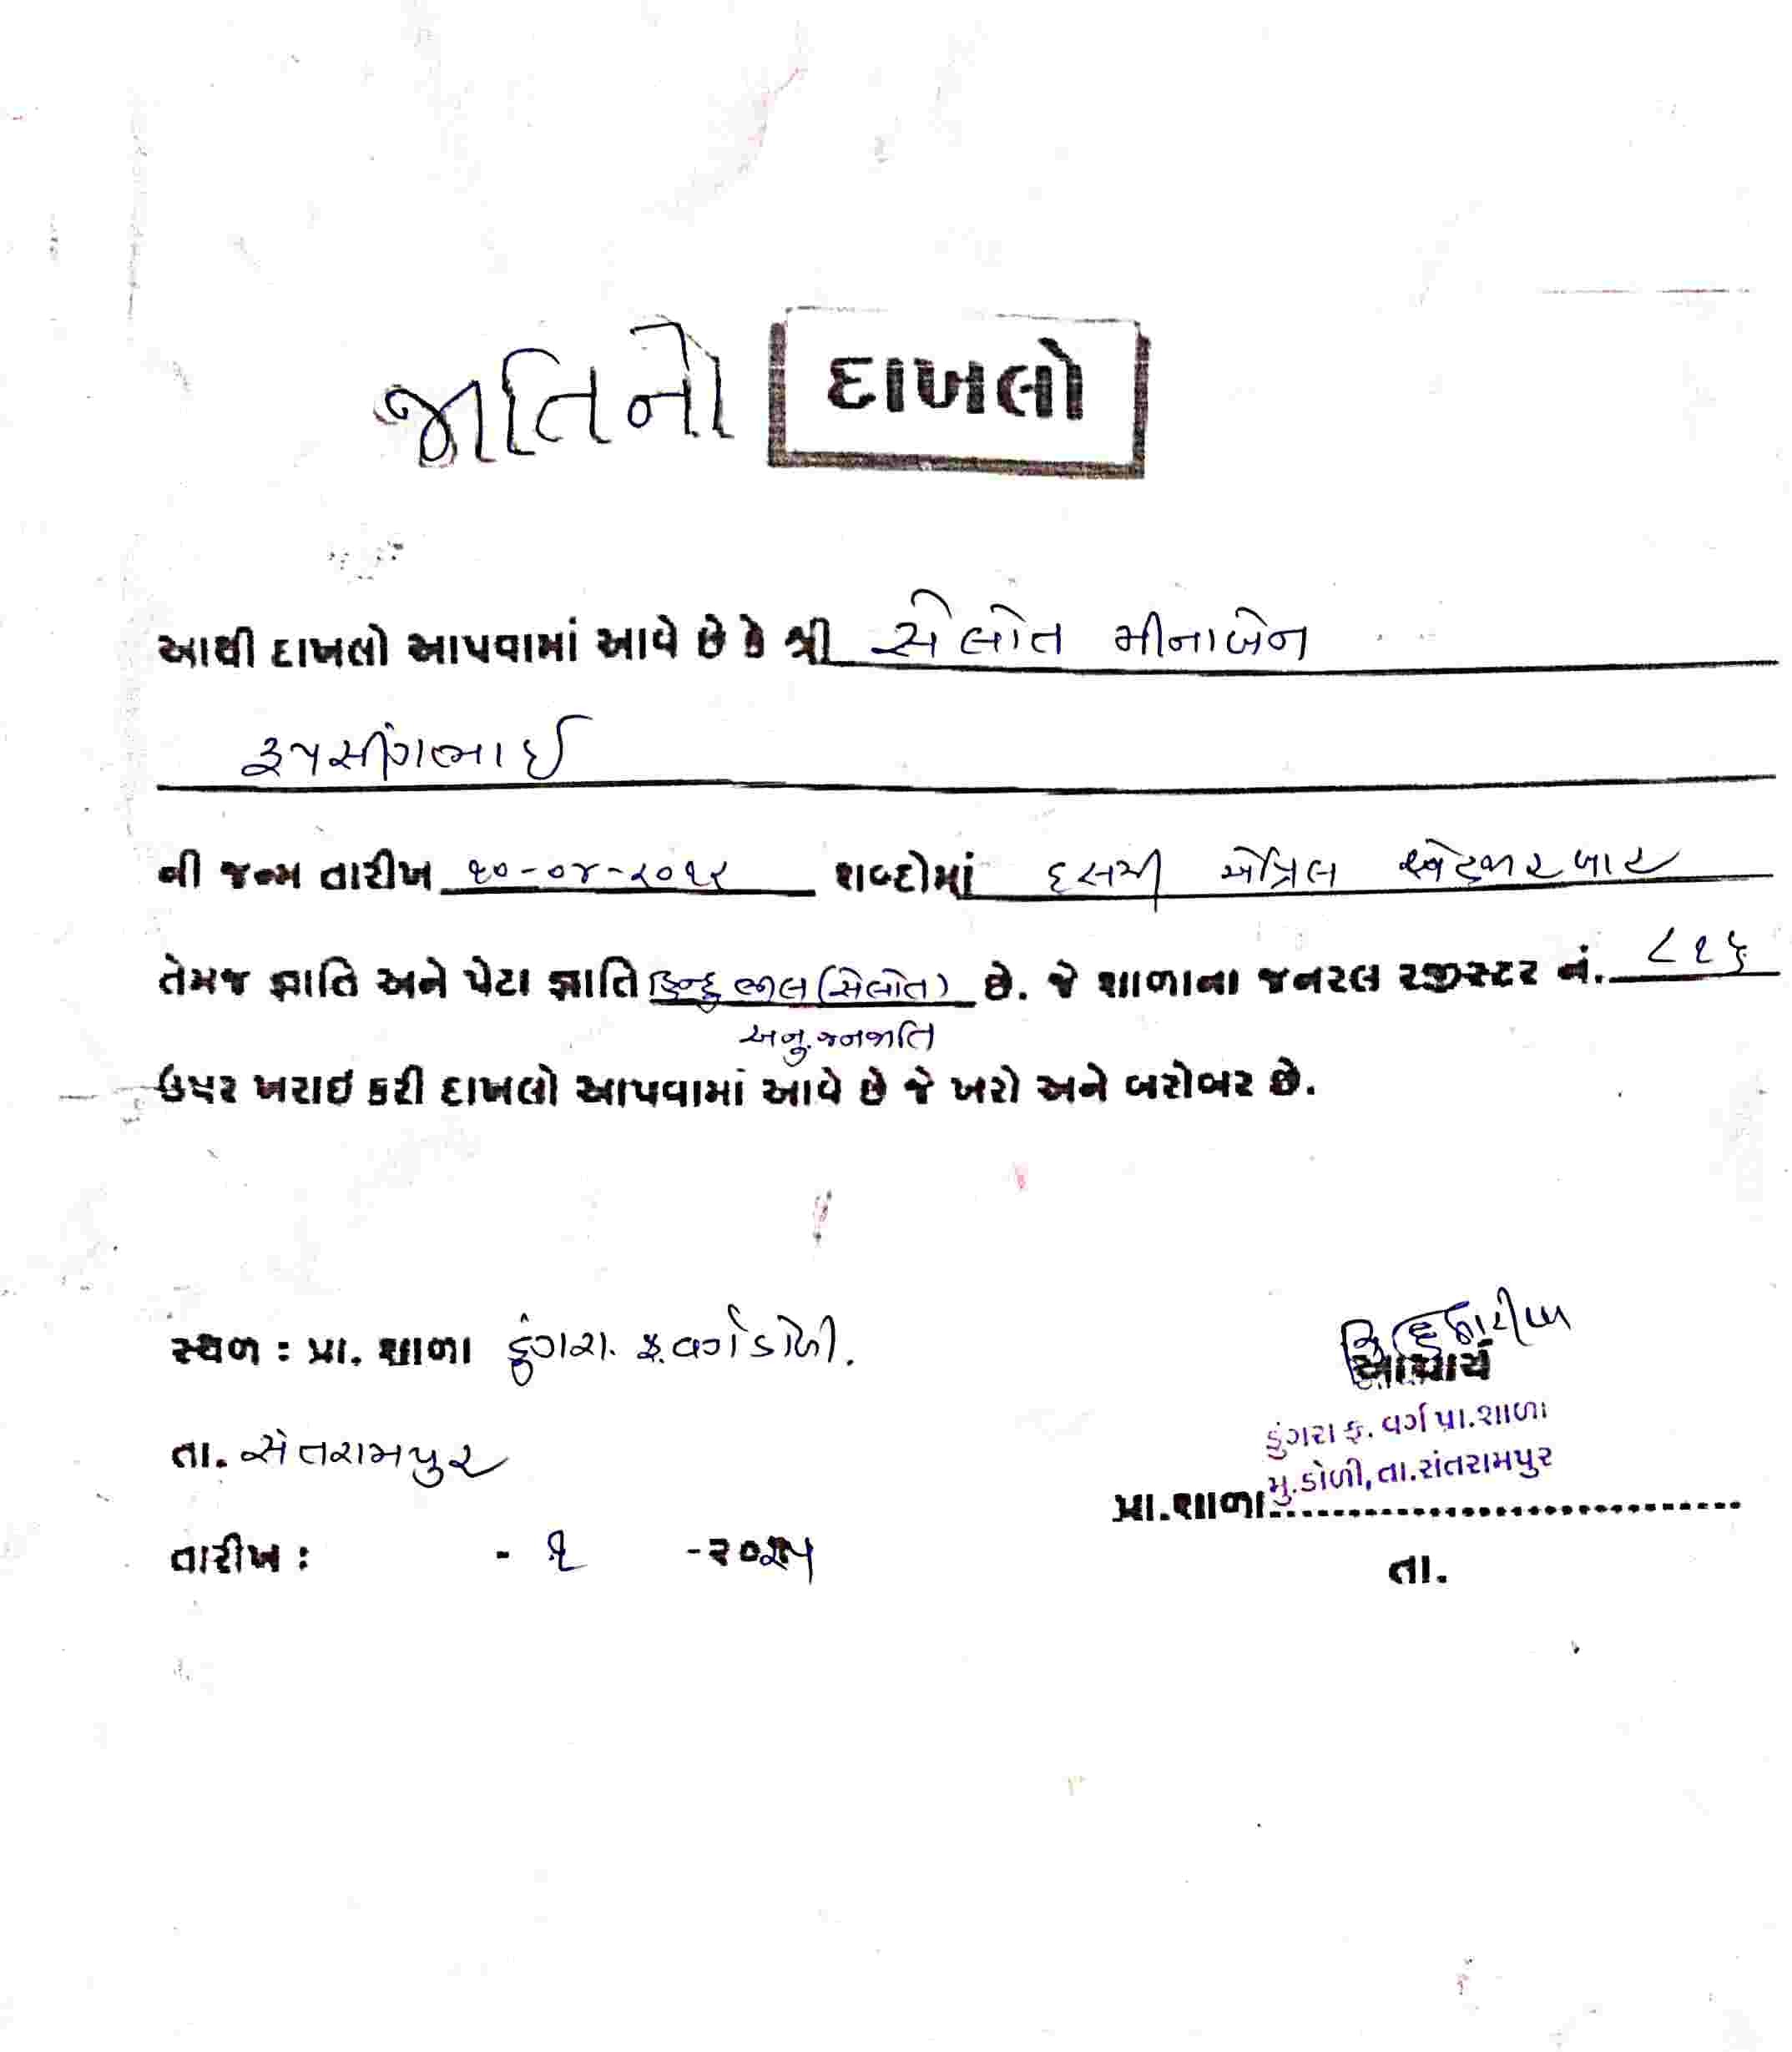 જાતિનો દાખલો
આથી દાખલો આપવામાં આવે છે કે શ્રી સેલોત મીનાબેન
રૂપસીંગભાઈ
ની જન્મ તારીખ ૧૦-૦૪-૨૦૧૨ શબ્દોમાં દસમી એપ્રિલ બાર
તેમજ જ્ઞાતિ અને પેટા જ્ઞાતિ હિન્દુ ભીલ (સેલોત) છે. જે શાળાના જનરલ રજીસ્ટર નં. ૮૧૬
અનુ.જનજાતિ
ઉપર ખરાઇ કરી દાખલો આપવામાં આવે છે જે ખરો અને બરોબર છે.
સ્થળ : પ્રા. શાળા ડુંગરા. ફ.વર્ગ ડોળી.
આચાર્ય
ડુંગરા ફ. વર્ગ પ્રા.શાળા
તા. સંતરામપુર
મુ.ડોળી, તા.સંતરામપુર
પ્રા.શાળા..............................
તારીખ : - ૧ -૨૦૨૫
તા.